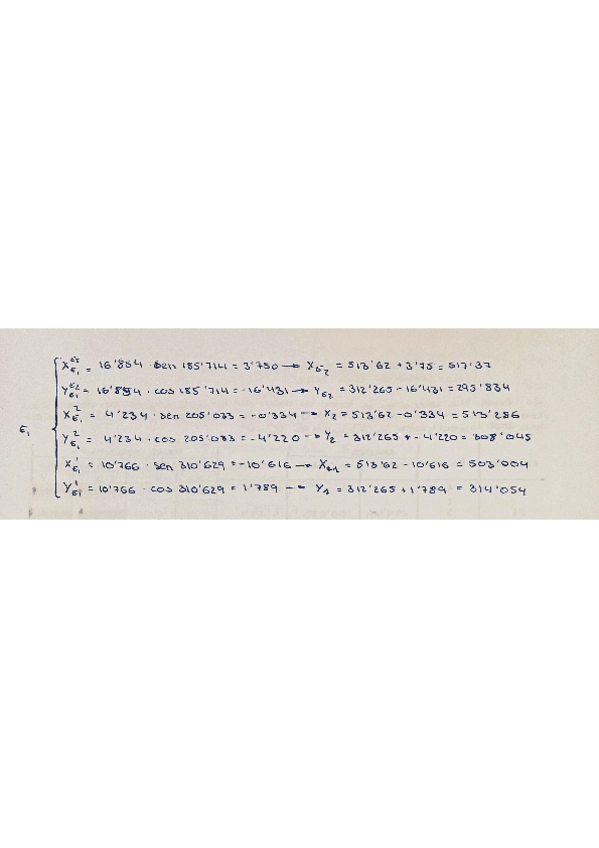 X_E1^E2 = 16'854 · sen 185'714 = 3'750 → X_E2 = 513'62 + 3'75 = 517'37
Y_E1^E2 = 16'854 · cos 185'714 = -16'431 → Y_E2 = 312'265 - 16'431 = 295'834
X_E1^2 = 4'234 · sen 205'033 = -0'334 → X_2 = 513'62 - 0'334 = 513'286
E1 Y_E1^2 = 4'234 · cos 205'033 = -4'220 → Y_2 = 312'265 + -4'220 = 308'045
X_E1^1 = 10'766 · sen 310'629 = -10'616 → = 513'62 - 10'616 = 503'004
Y_E1^1 = 10'766 · cos 310'629 = 1'789 → Y_1 = 312'265 + 1'789 = 314'054